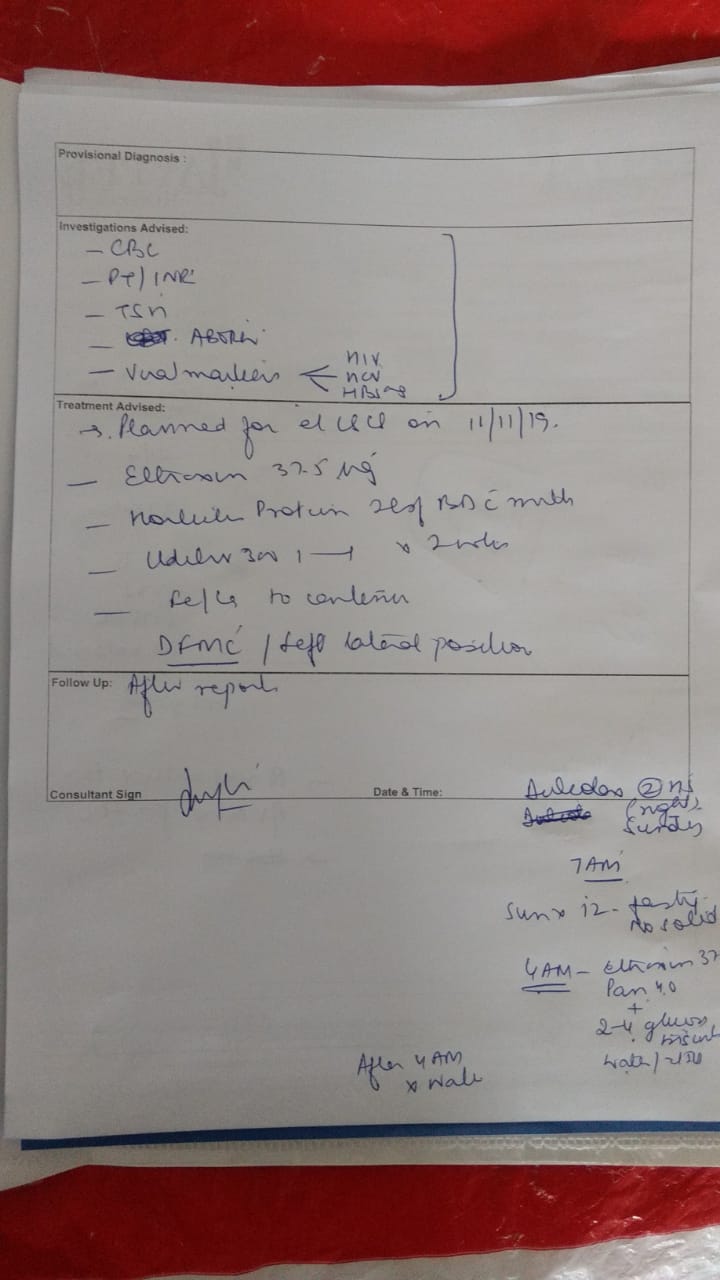 Provisional Diagnosis :
Investigations Advised:
- CBC
- PT/INR
- TSH
- ABORh
- Viral markers < HIV
HCV
HBsAg
Treatment Advised:
→ Planned for el LSCS on 11/11/19.
- Eltroxin 37.5 µg
- Protein BD c milk
- 300 1-1 x 2 wks
- Fe/Ca to continue
DFMC / Left lateral position
Follow Up: After reports
Consultant Sign
Date & Time:
(night)
Sunday
7AM
12 - fasting
No solid
4AM - Eltroxin 37
Pan 40
+
2-4 glucose
biscuit
water /
After 4AM
x water